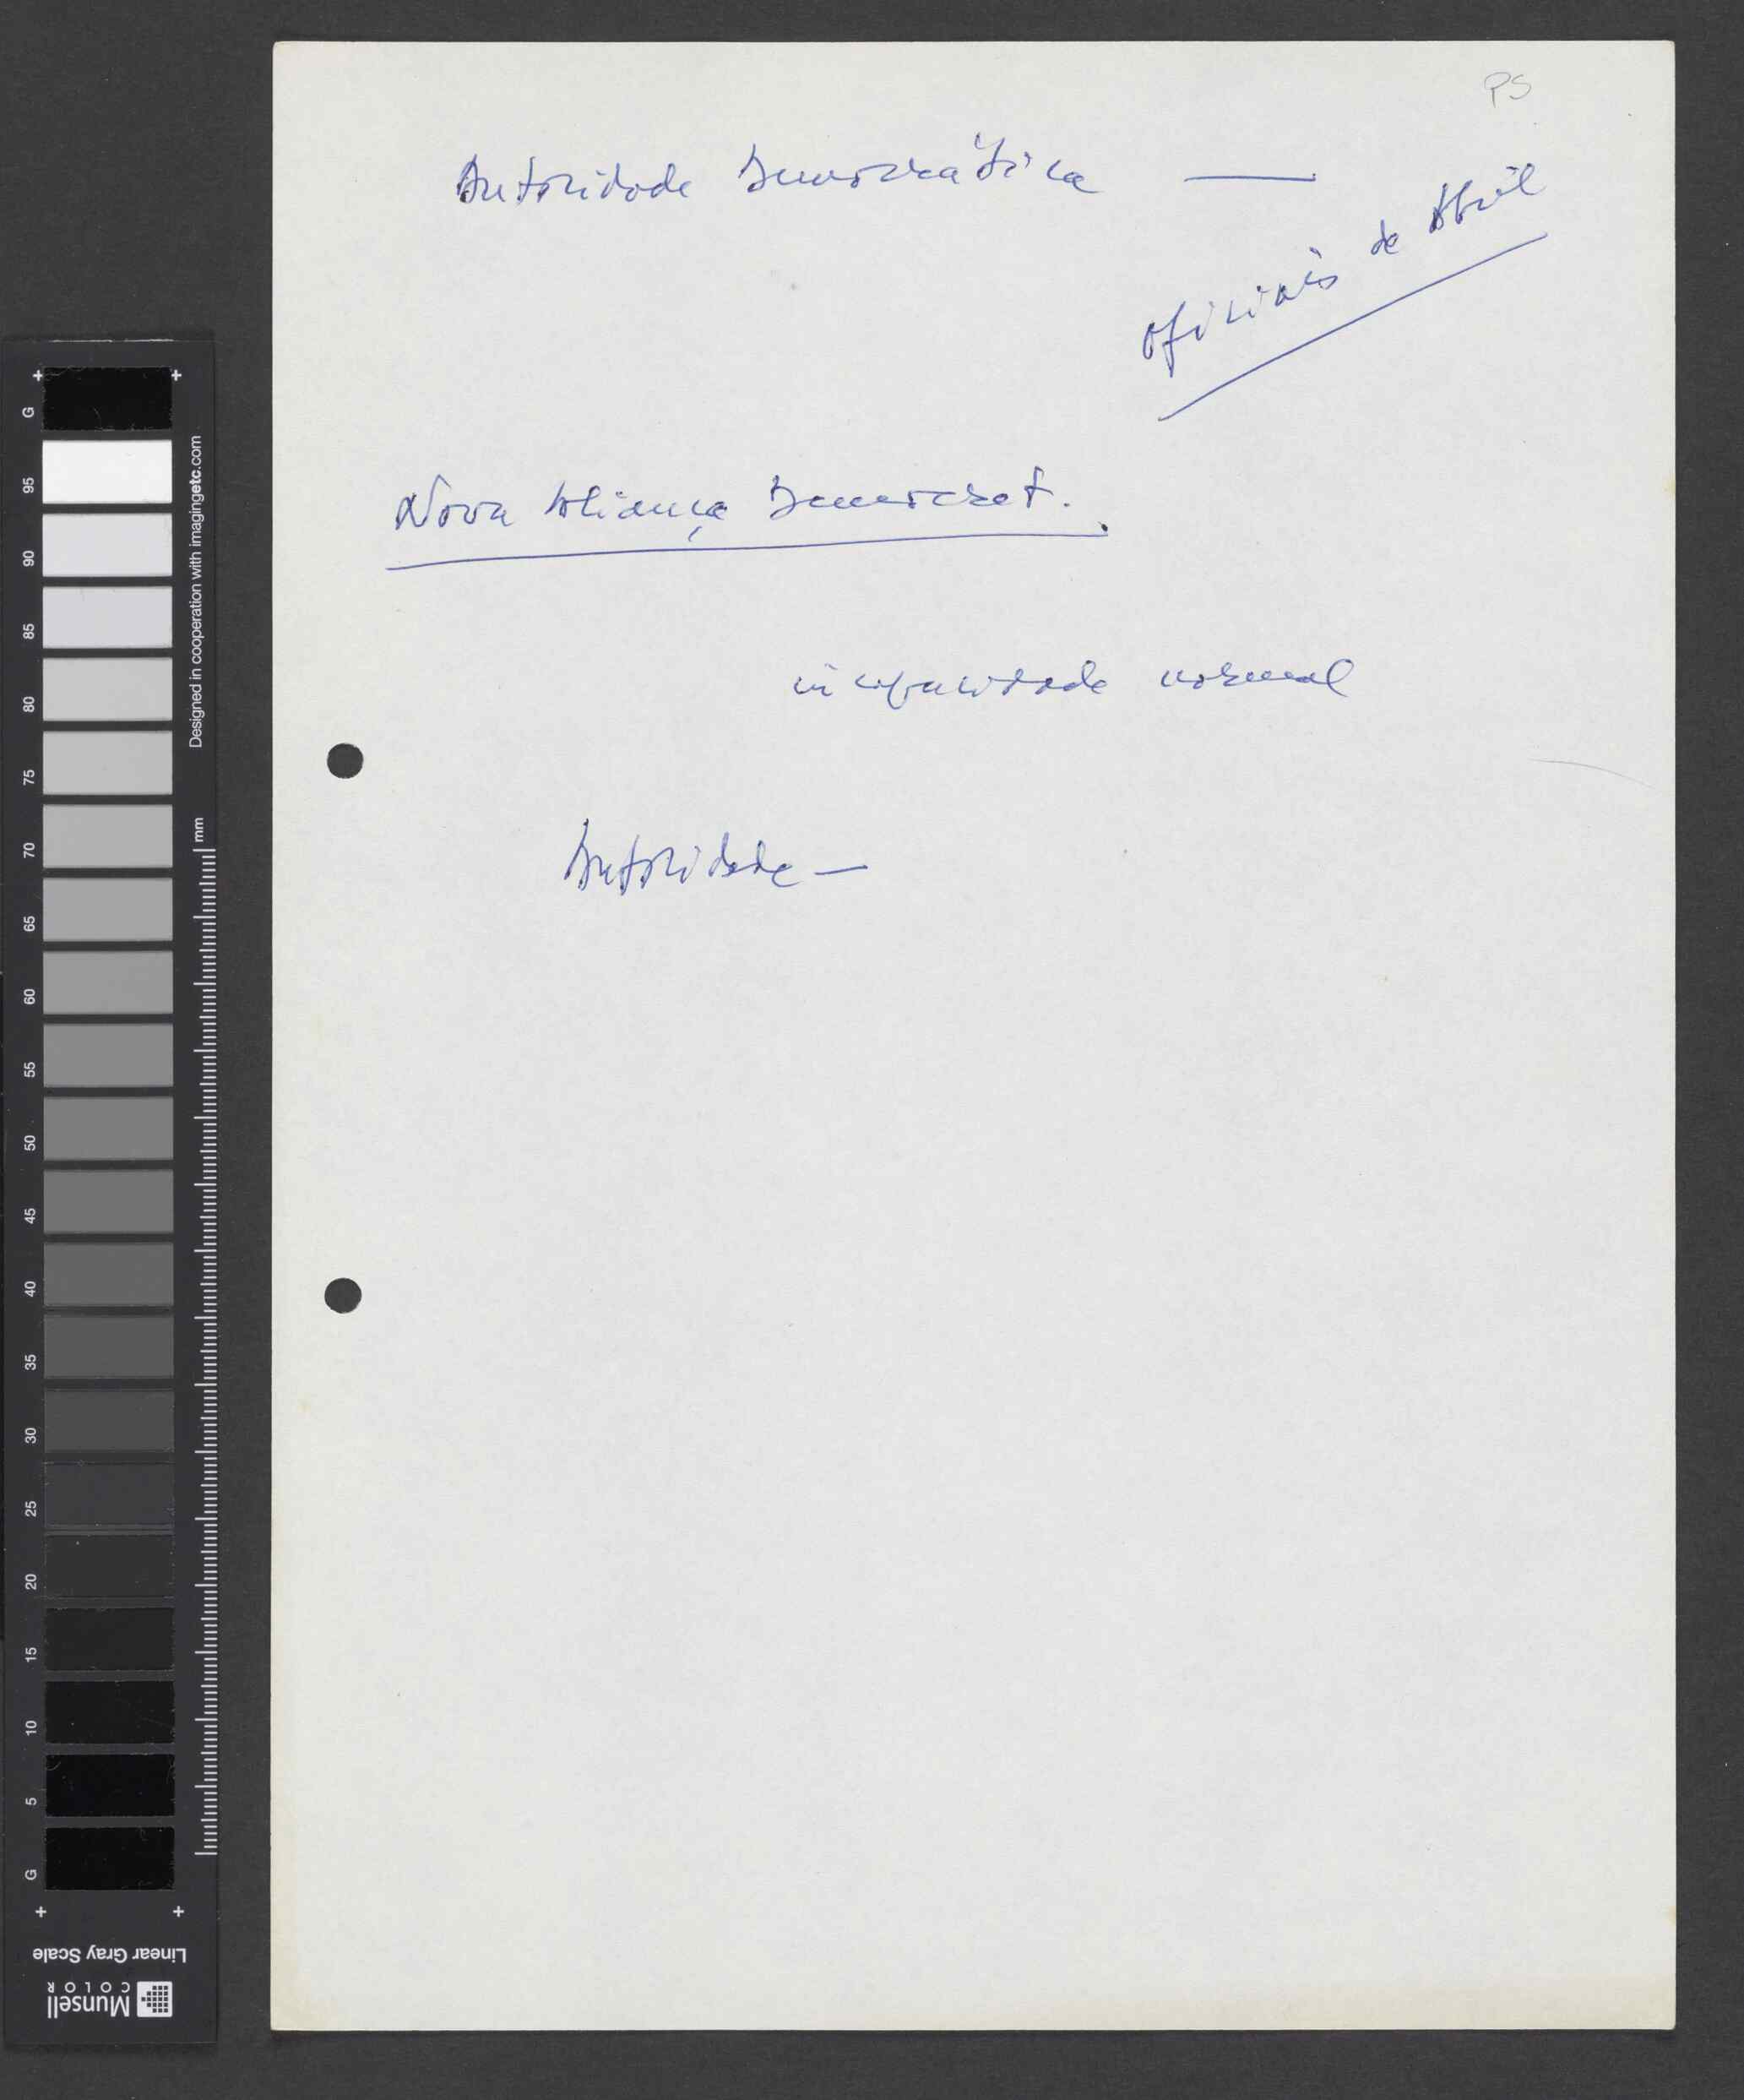 PS
Autoridade Democrática —
Oficiais de Abril
Nova Aliança Democrat.
incapacidade normal
Autoridade —
G
95
90
85
80
75
70
65
60
55
50
45
40
35
30
25
20
15
10
5
G
Designed in cooperation with imagingetc.com
mm
Linear Gray Scale
Munsell
COLOR